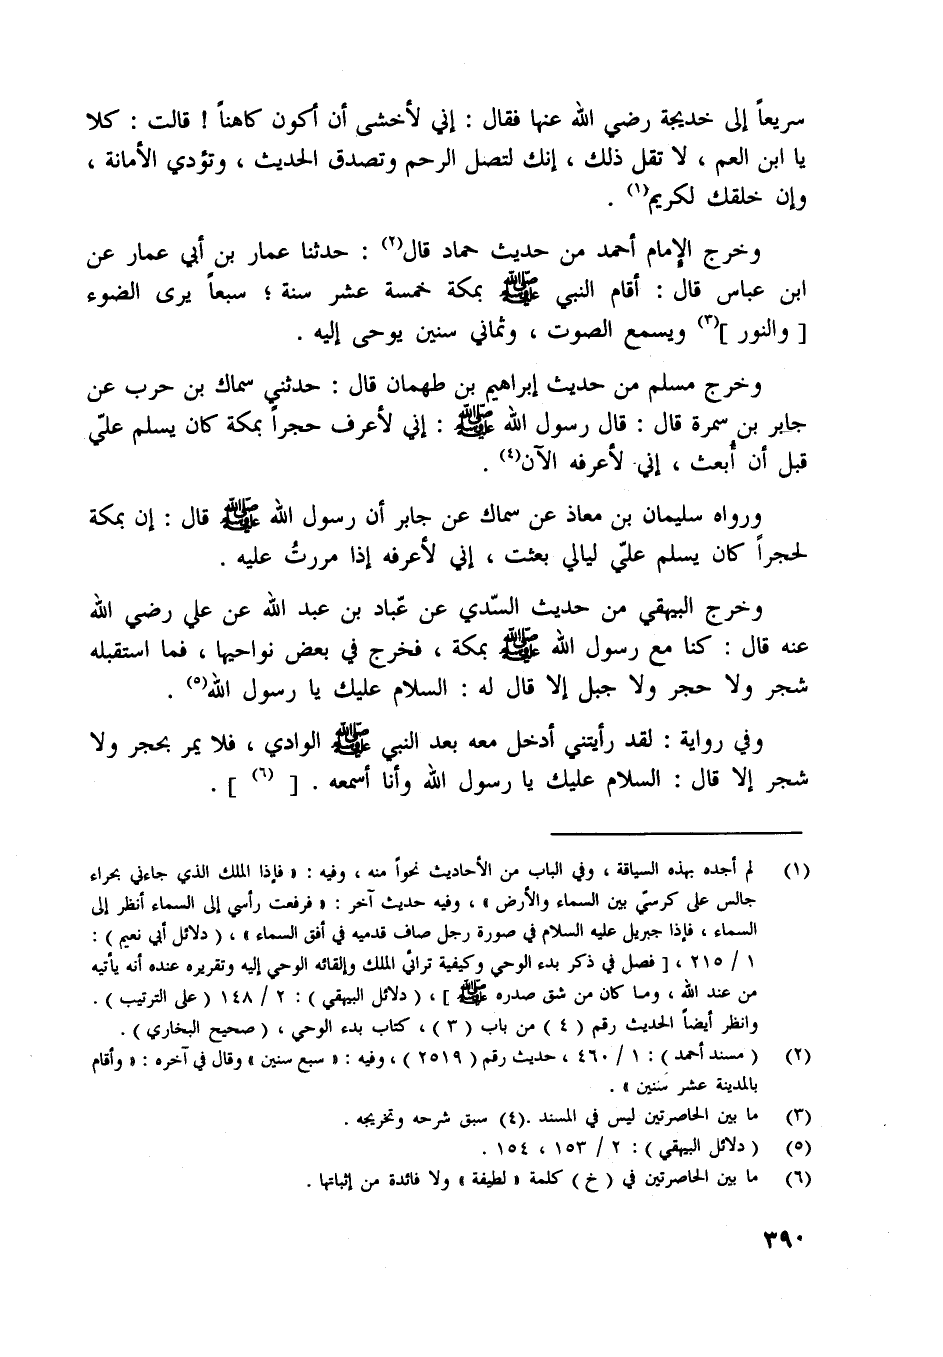 سريعاً إلى خديجة رضي الله عنها فقال : إني لأخشى أن أكون كاهناً ! قالت : كلا
يا ابن العم ، لا تقل ذلك ، إنك لتصل الرحم وتصدق الحديث ، وتؤدي الأمانة ،
وإن خلقك لكريم(١) .
وخرج الإمام أحمد من حديث حماد قال(٢) : حدثنا عمار بن أبي عمار عن
ابن عباس قال : أقام النبي ﷺ بمكة خمسة عشر سنة ؛ سبعاً يرى الضوء
[ والنور ](٣) ويسمع الصوت ، وثماني سنين يوحى إليه .
وخرج مسلم من حديث إبراهيم بن طهمان قال : حدثني سماك بن حرب عن
جابر بن سمرة قال : قال رسول الله ﷺ : إني لأعرف حجراً بمكة كان يسلم عليّ
قبل أن أُبعث ، إني لأعرفه الآن(٤) .
ورواه سليمان بن معاذ عن سماك عن جابر أن رسول الله ﷺ قال : إن بمكة
لحجراً كان يسلم عليّ ليالي بعثت ، إني لأعرفه إذا مررتُ عليه .
وخرج البيهقي من حديث السّدي عن عّباد بن عبد الله عن علي رضي الله
عنه قال : كنا مع رسول الله ﷺ بمكة ، فخرج في بعض نواحيها ، فما استقبله
شجر ولا حجر ولا جبل إلا قال له : السلام عليك يا رسول الله(٥) .
وفي رواية : لقد رأيتني أدخل معه بعد النبي ﷺ الوادي ، فلا يمر بحجر ولا
شجر إلا قال : السلام عليك يا رسول الله وأنا أسمعه . [ (٦) ] .
(١) لم أجده بهذه السياقة ، وفي الباب من الأحاديث نحواً منه ، وفيه : « فإذا الملك الذي جاءني بحراء
جالس على كرسيّ بين السماء والأرض » ، وفيه حديث آخر : « فرفعت رأسي إلى السماء أنظر إلى
السماء ، فإذا جبريل عليه السلام في صورة رجل صاف قدميه في أفق السماء » ، ( دلائل أبي نعيم ) :
١ / ٢١٥ ، [ فصل في ذكر بدء الوحي وكيفية ترائي الملك وإلقائه الوحي إليه وتقريره عنده أنه يأتيه
من عند الله ، وما كان من شق صدره ﷺ ] ، ( دلائل البيهقي ) : ٢ / ١٤٨ ( على الترتيب ) .
وانظر أيضاً الحديث رقم ( ٤ ) من باب ( ٣ ) ، كتاب بدء الوحي ، ( صحيح البخاري ) .
(٢) ( مسند أحمد ) : ١ / ٤٦٠ ، حديث رقم ( ٢٥١٩ ) ، وفيه : « سبع سنين » وقال في آخره : « وأقام
بالمدينة عشر سنين » .
(٣) ما بين الحاصرتين ليس في المسند .(٤) سبق شرحه وتخريجه .
(٥) ( دلائل البيهقي ) : ٢ / ١٥٣ ، ١٥٤ .
(٦) ما بين الحاصرتين في ( خ ) كلمة « لطيفة » ولا فائدة من إثباتها .
٣٩٠